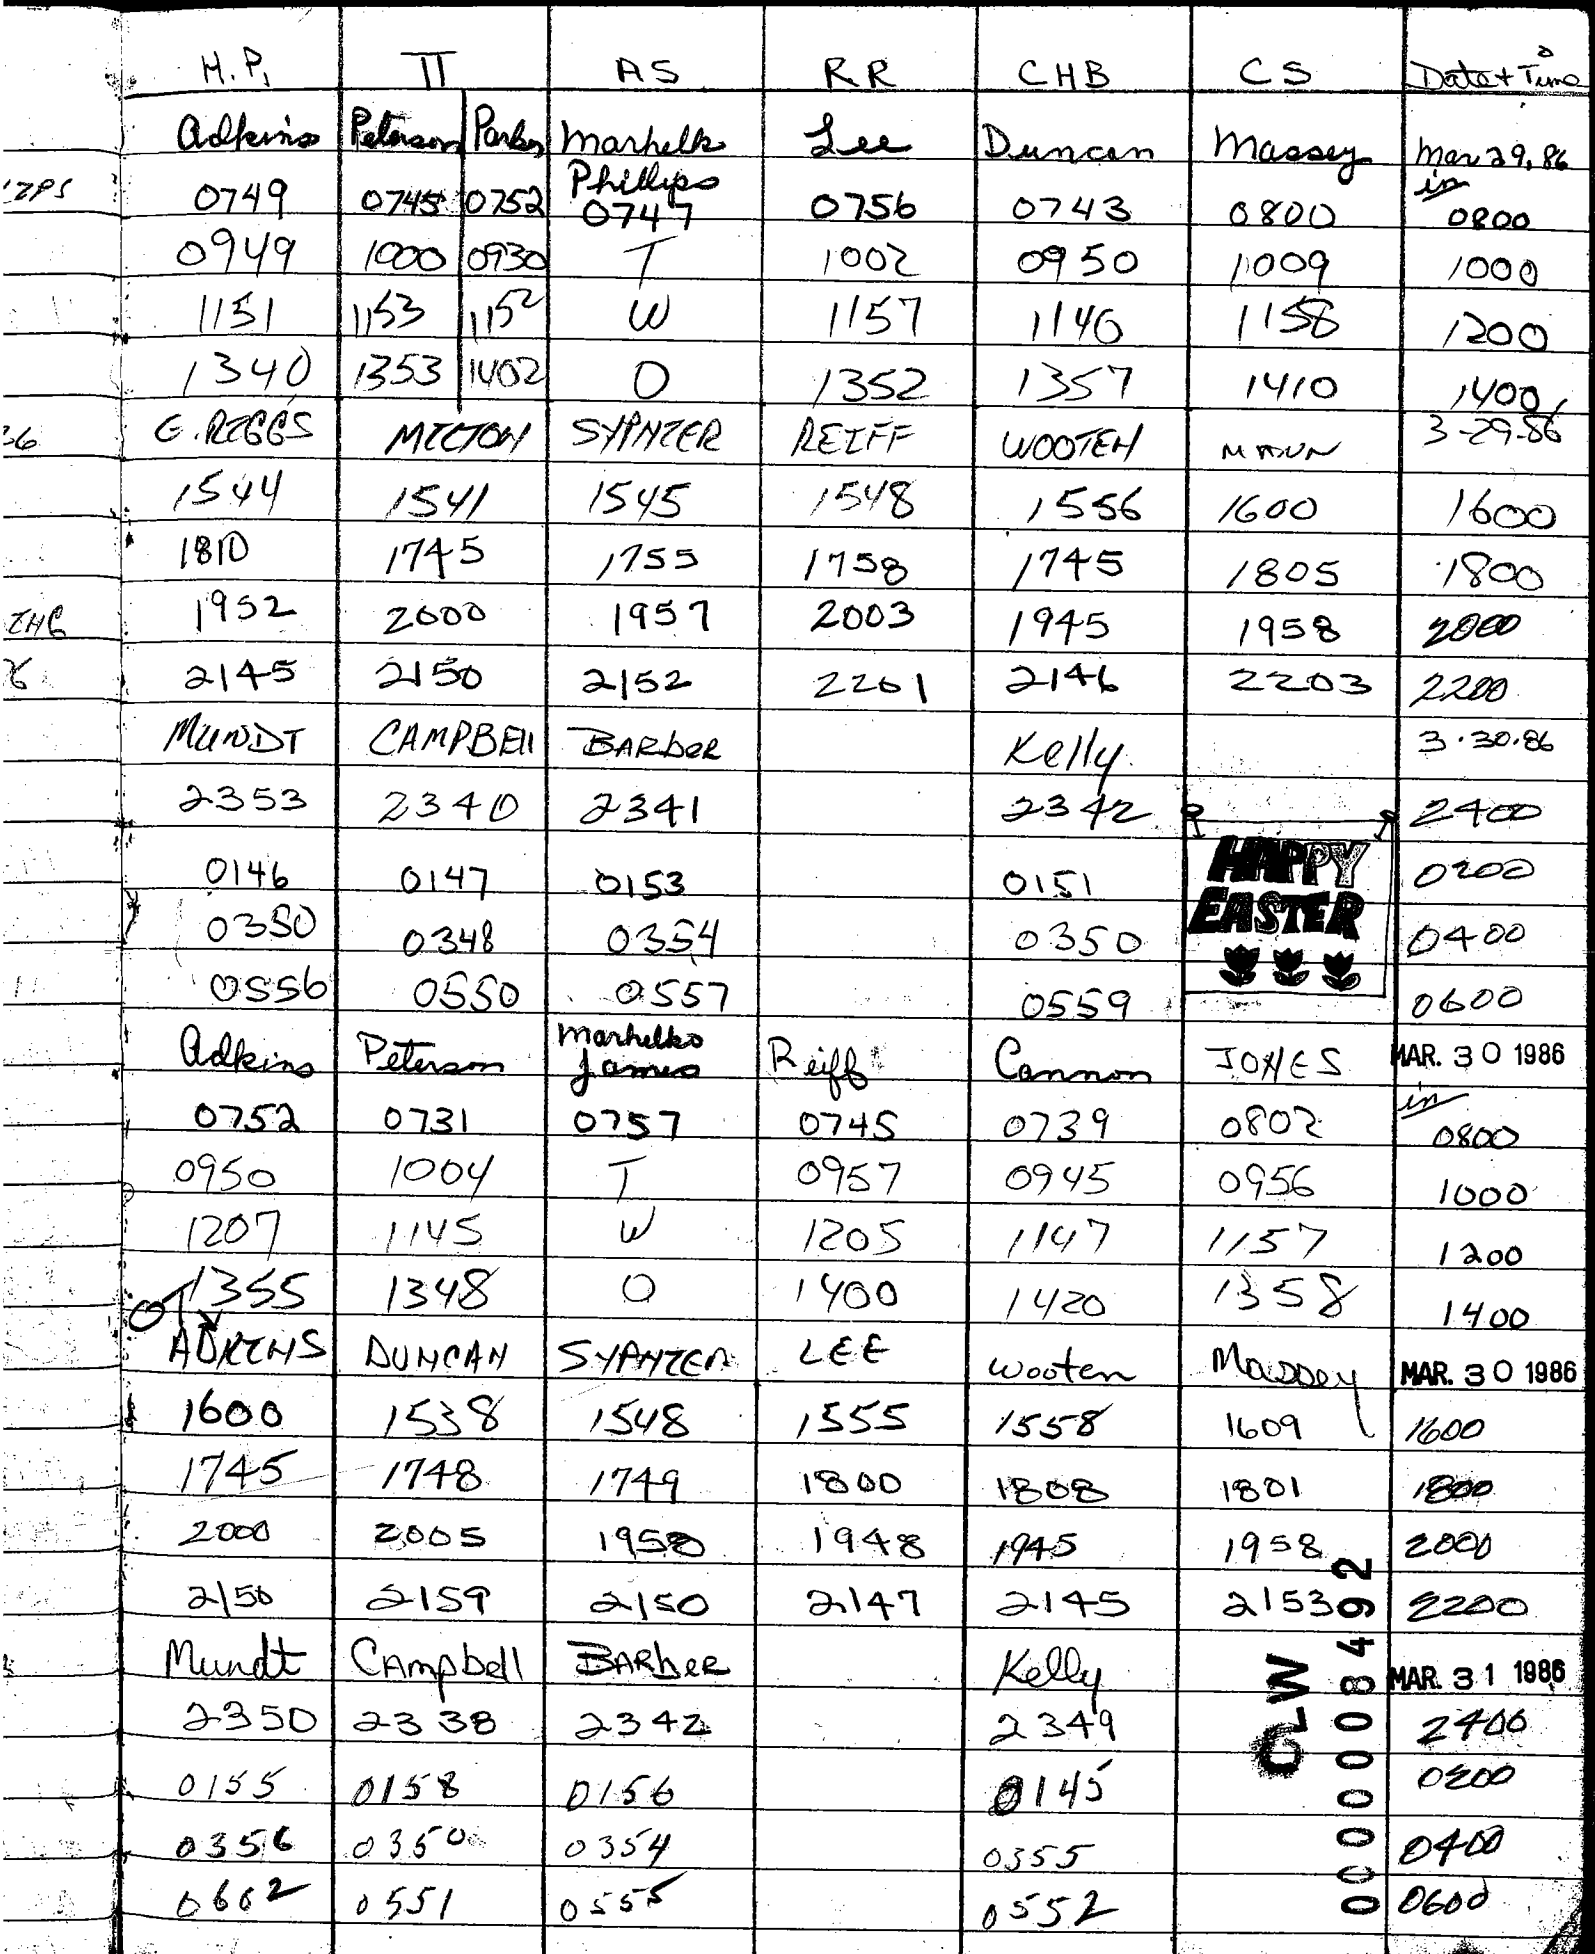 H.P. TT AS RR CHB CS Date + Time
Adkins Peterson Parker Marhelko Lee Duncan Massey Mar 29, 86
Phillips in
ZPS 0749 0745 0752 0747 0756 0743 0800 0800
0949 1000 0930 T 1002 0950 1009 1000
1151 1153 1152 W 1157 1146 1158 1200
1340 1353 1402 O 1352 1357 1410 1400
G. RIGGS MILTON SYPNIER REIFF WOOTEN MAUN 3-29-86
1544 1541 1545 1548 1556 1600 1600
1810 1745 1755 1758 1745 1805 1800
1952 2000 1957 2003 1945 1958 2000
2145 2150 2152 2201 2146 2203 2200
MUNDT CAMPBEll BARbER Kelly 3.30.86
2353 2340 2341 2342 2400
HAPPY
0146 0147 0153 0151 0200
EASTER
0350 0348 0354 0350 0400
0556 0550 0557 0559 0600
Adkins Peterson Marhelko Reiff Cannon JONES MAR. 30 1986
James in
0752 0731 0757 0745 0739 0802 0800
0950 1004 T 0957 0945 0956 1000
1207 1145 W 1205 1147 1157 1200
1355 1348 O 1400 1420 1358 1400
OT
ADKINS DUNCAN SYPNIER LEE Wooten Massey MAR. 30 1986
1600 1538 1548 1555 1558 1609 1600
1745 1748 1749 1800 1808 1801 1800
2000 2005 1958 1948 1945 1958 2000
2150 2159 2150 2147 2145 2153 2200
Mundt CAmpbell BARbER Kelly MAR. 31 1986
2350 2338 2342 2349 2400
0155 0158 0156 0145 0200
0356 0350 0354 0355 0400
0602 0551 0555 0552 0600
CLW
0000008492